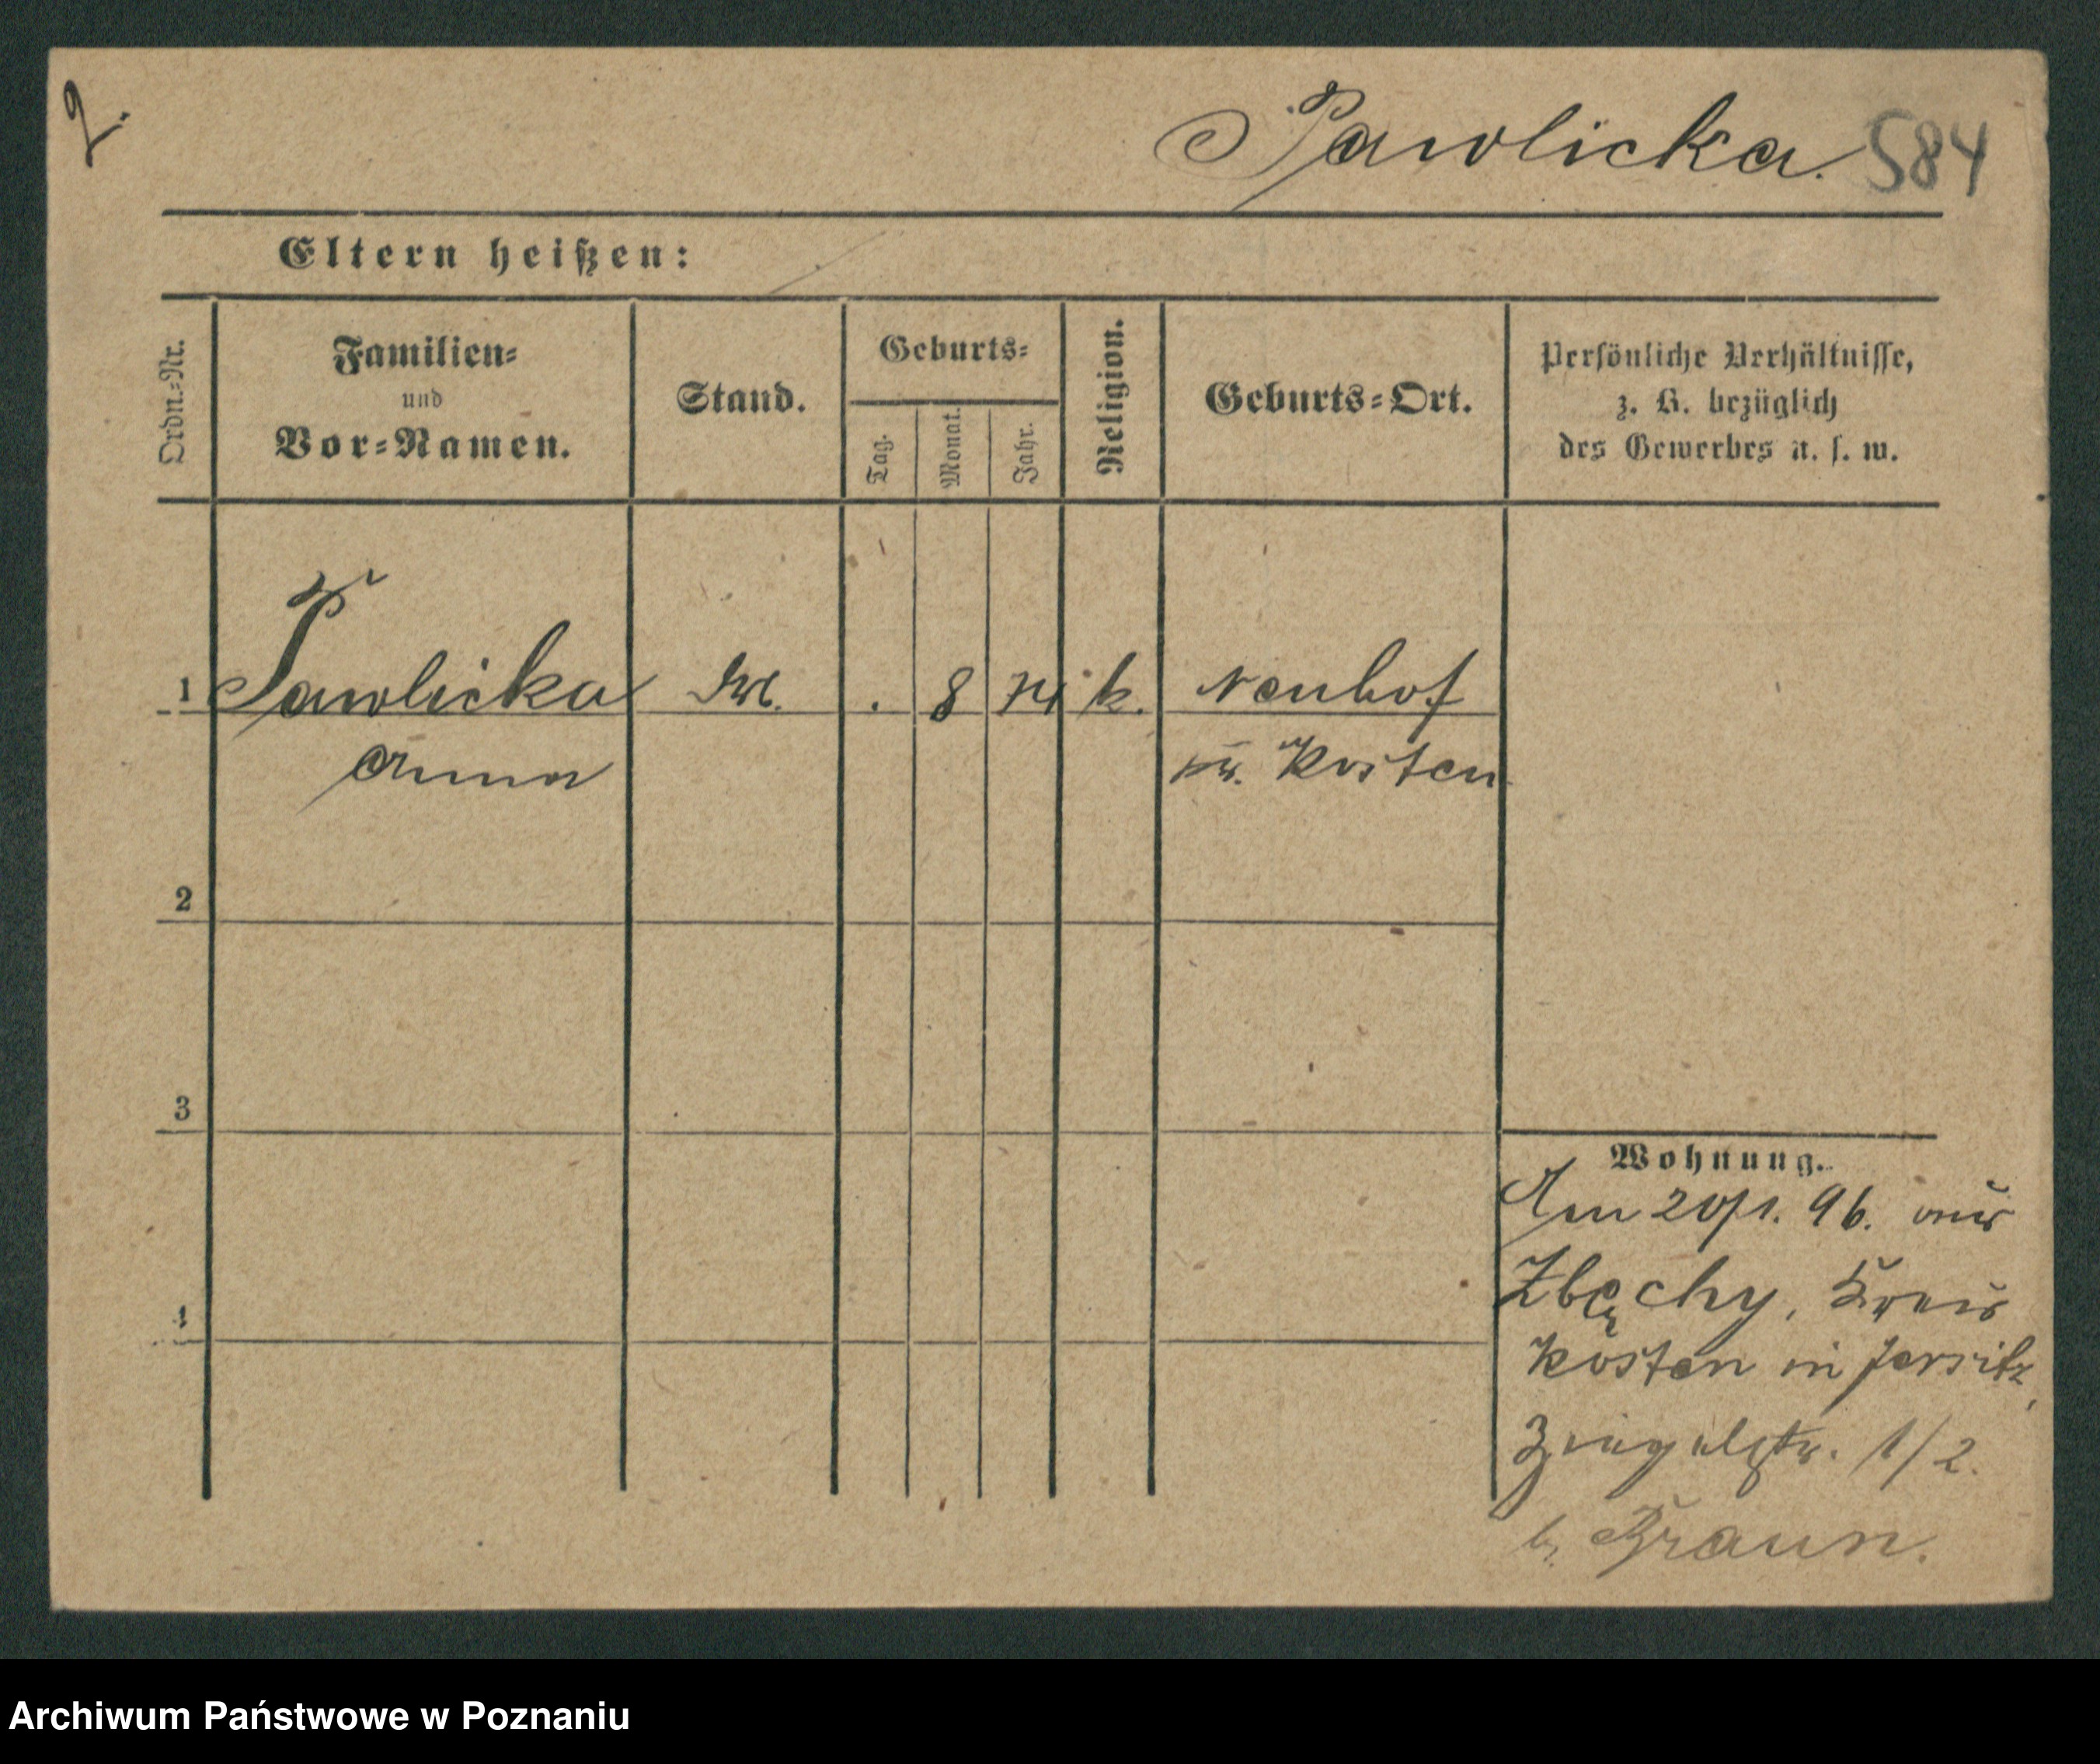 2.
Pawlicka. 584
Eltern heißen:
Ordn.=Nr.
Familien=
und
Vor=Namen.
Stand.
Geburts=
Tag.
Monat.
Jahr.
Religion.
Geburts=Ort.
Persönliche Verhältnisse,
z. B. bezüglich
des Gewerbes u. s. w.
1 Pawlicka . 8 74 k. Neuhof
Anna Kr. Kosten
2
3
4
Wohnung.
Am 20/1. 96. aus
Zbęchy, Kreis
Kosten in Jersitz,
str. 1/2.
b. Braun.
Archiwum Państwowe w Poznaniu